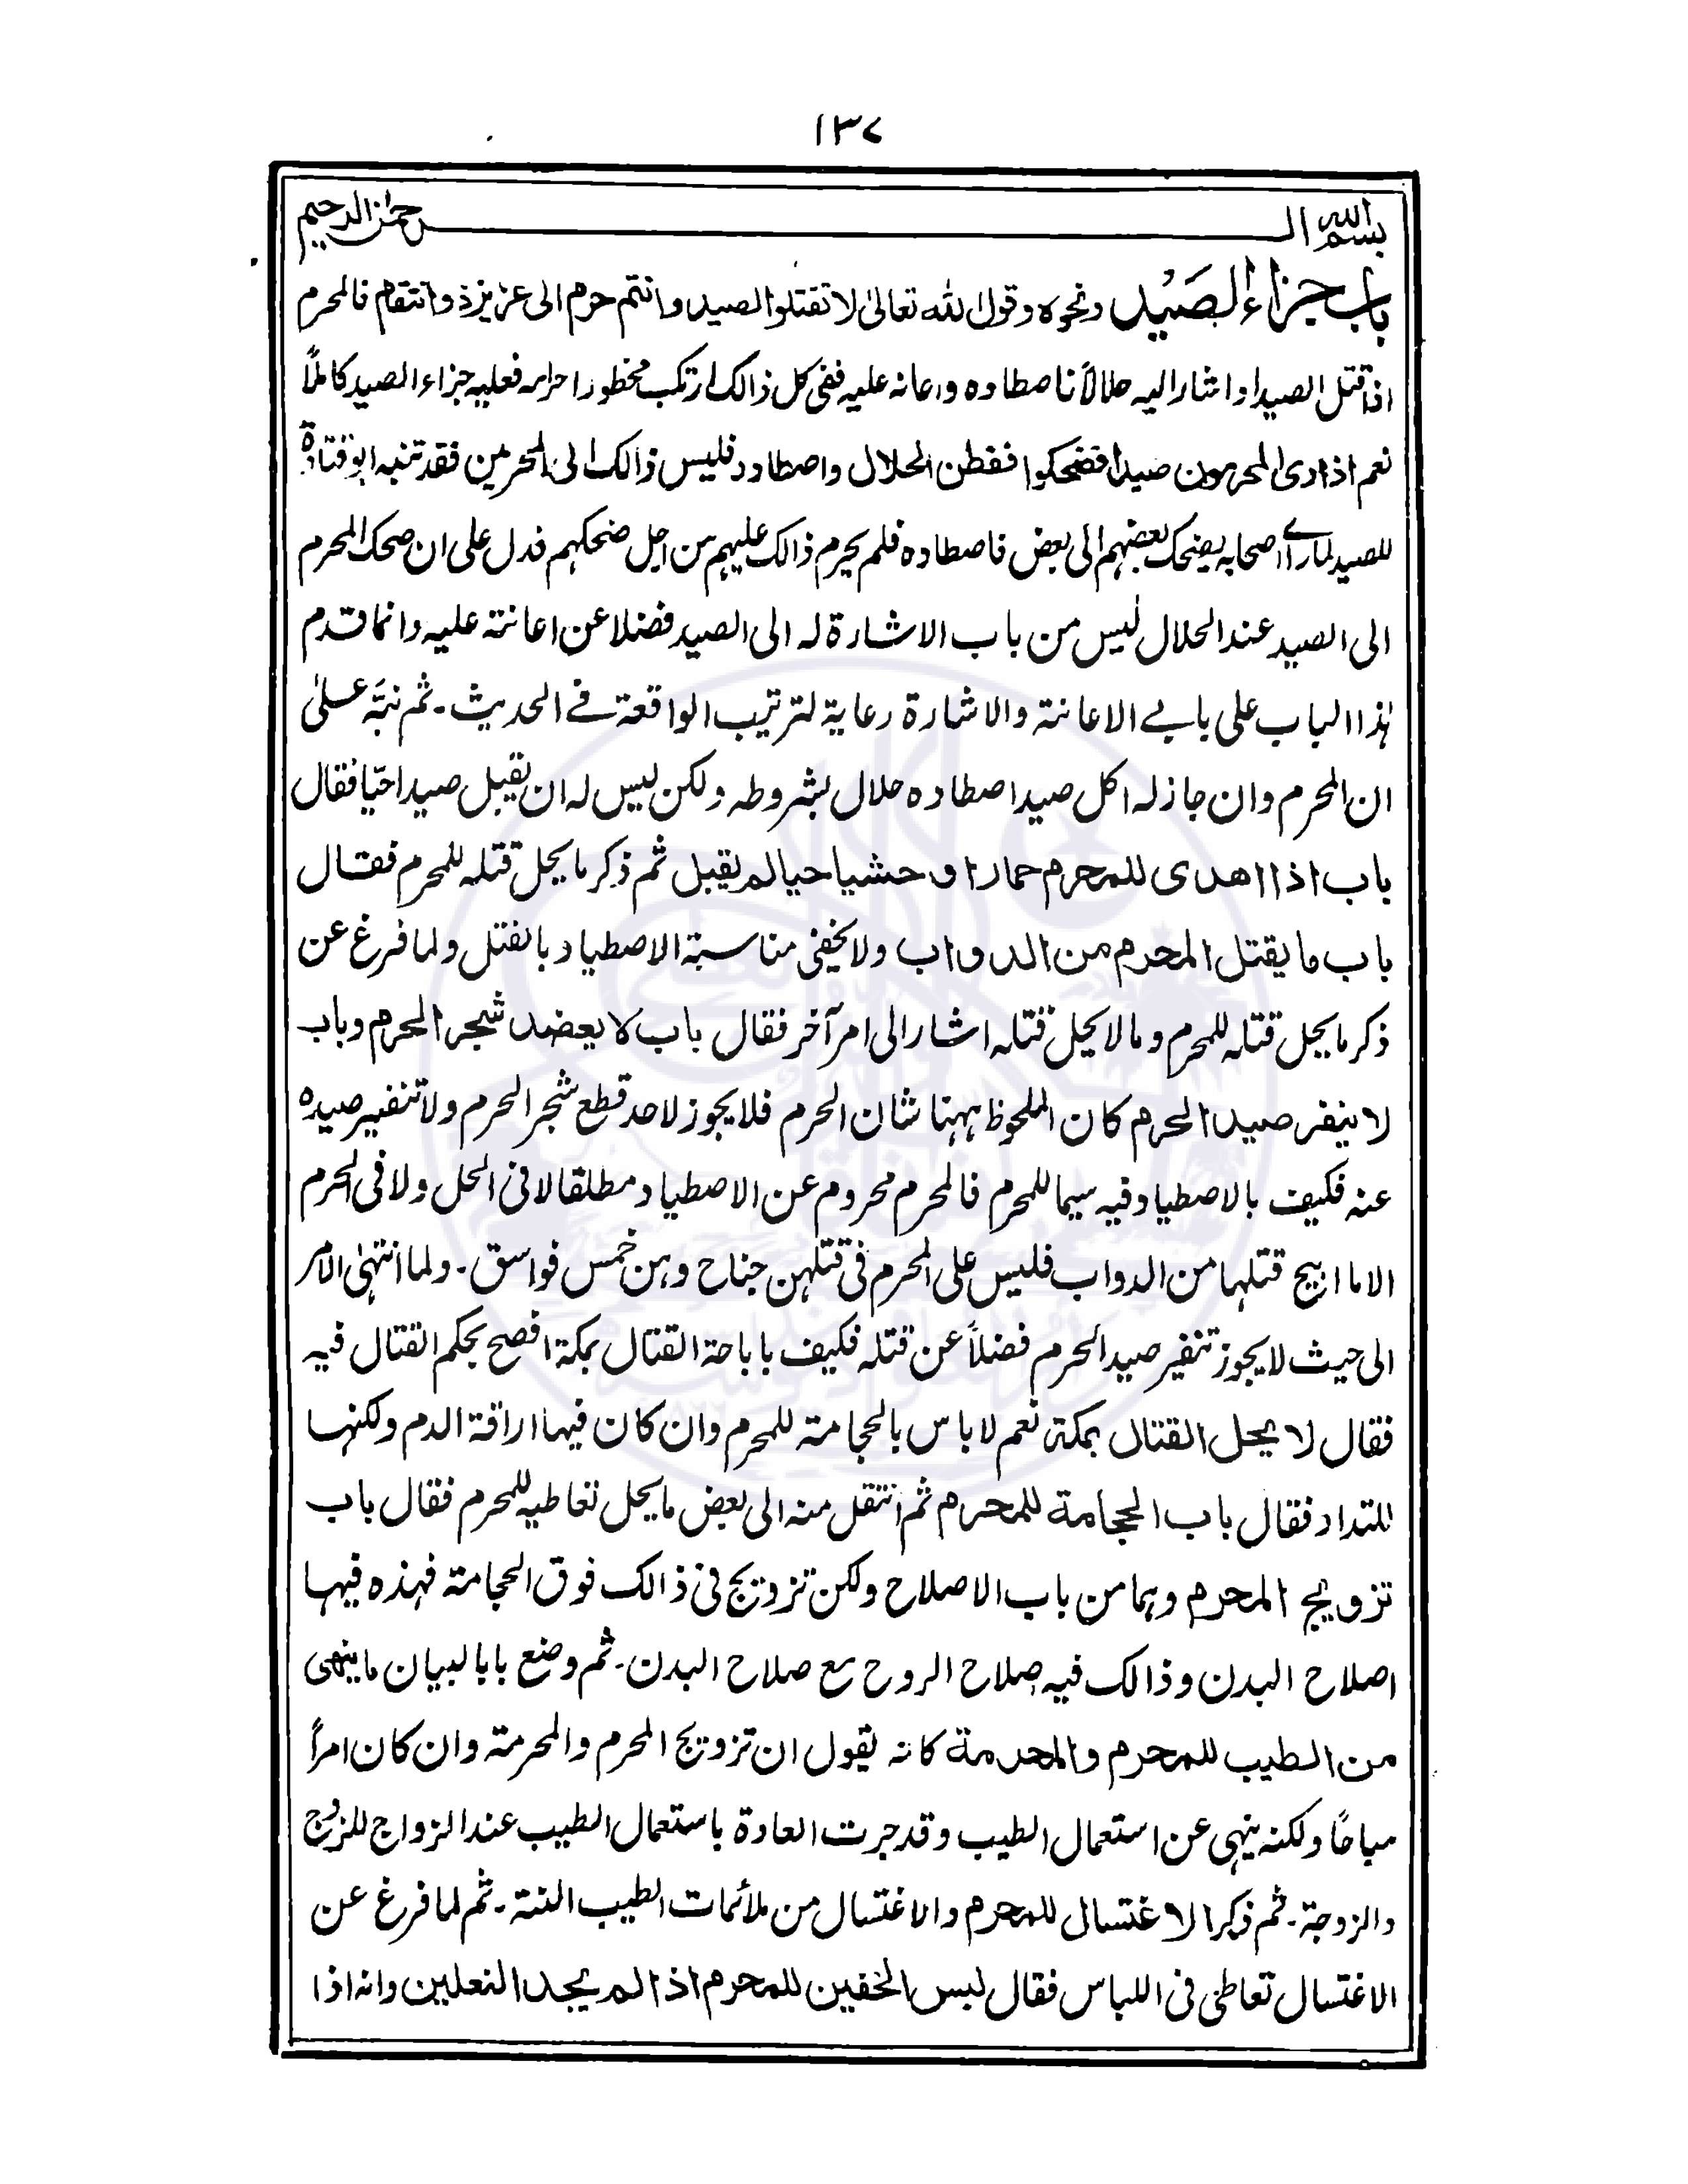 ١٣٧
بسم الله الرحمن الرحيم
باب جزاء الصيد ونحوه وقول الله تعالىٰ لا تقتلوا الصيد وانتم حرم الى عزيز ذو انتقام فالمحرم
اذا قتل الصيد او اشار اليه حلالاً فاصطاده واعانه عليه ففى كل ذالك ارتكب محظور احرامه فعليه جزاء الصيد كاملاً
نعم اذا رى المحرمون صيدا فضحكوا ففطن الحلال واصطاده فليس ذالك الى المحرمين فقد تنبه ابو قتادة
للصيد لما رأے اصحابه يضحك بعضهم الى بعض فاصطاده فلم يحرم ذالك عليهم من اجل ضحكهم فدل على ان ضحك المحرم
الى الصيد عند الحلال ليس من باب الاشارة له الى الصيد فضلا عن اعانته عليه وانما قدم
هٰذا الباب على بابے الاعانة والاشارة رعاية لترتيب الواقعة فے الحديث۔ ثم نبّه علىٰ
ان المحرم وان جاز له اكل صيد اصطاده حلال بشروطه ولكن ليس له ان يقبل صيدا حيّا فقال
باب اذا اهدى للمحرم حمارا وحشيا حيا لم يقبل ثم ذكر ما يحل قتله للمحرم فقال
باب ما يقتل المحرم من الدواب ولا يخفىٰ مناسبة الاصطياد بالقتل ولما فرغ عن
ذكر ما يحل قتله للمحرم وما لا يحل قتله اشار الى امر آخر فقال باب لا يعضد شجر الحرم وباب
لا ينفر صيد الحرم كان الملحوظ ههنا شان الحرم فلا يجوز لاحد قطع شجر الحرم ولا تنفير صيده
عنه فكيف بالاصطياد فيه سيما للمحرم فالمحرم محروم عن الاصطياد مطلقا لا فى الحل ولا فى الحرم
الا ما ابيح قتلها من الدواب فليس على المحرم فى قتلهن جناح وهن خمس فواسق۔ ولما انتهىٰ الامر
الى حيث لا يجوز تنفير صيد الحرم فضلاً عن قتله فكيف باباحة القتال بمكة افصح بحكم القتال فيه
فقال لا يحل القتال بمكة نعم لا باس بالحجامة للمحرم وان كان فيها اراقة الدم ولكنها
للتداو فقال باب الحجامة للمحرم ثم انتقل منه الى بعض ما يحل تعاطيه للمحرم فقال باب
تزويج المحرم وهما من باب الاصلاح ولكن تزويج فى ذالك فوق الحجامة فهذه فيها
اصلاح البدن وذالك فيه صلاح الروح مع صلاح البدن۔ ثم وضع بابا لبيان ما ينهى
من الطيب للمحرم والمحرمة كانه يقول ان تزويج المحرم والمحرمة وان كان امراً
مباحًا ولكنه ينهى عن استعمال الطيب وقد جرت العادة باستعمال الطيب عند الزواج للزوج
والزوجة۔ ثم ذكر الاغتسال للمحرم والاغتسال من ملائمات الطيب البتة۔ ثم لما فرغ عن
الاغتسال تعاطىٰ فى اللباس فقال لبس الخفين للمحرم اذا لم يجد النعلين وانه اذا